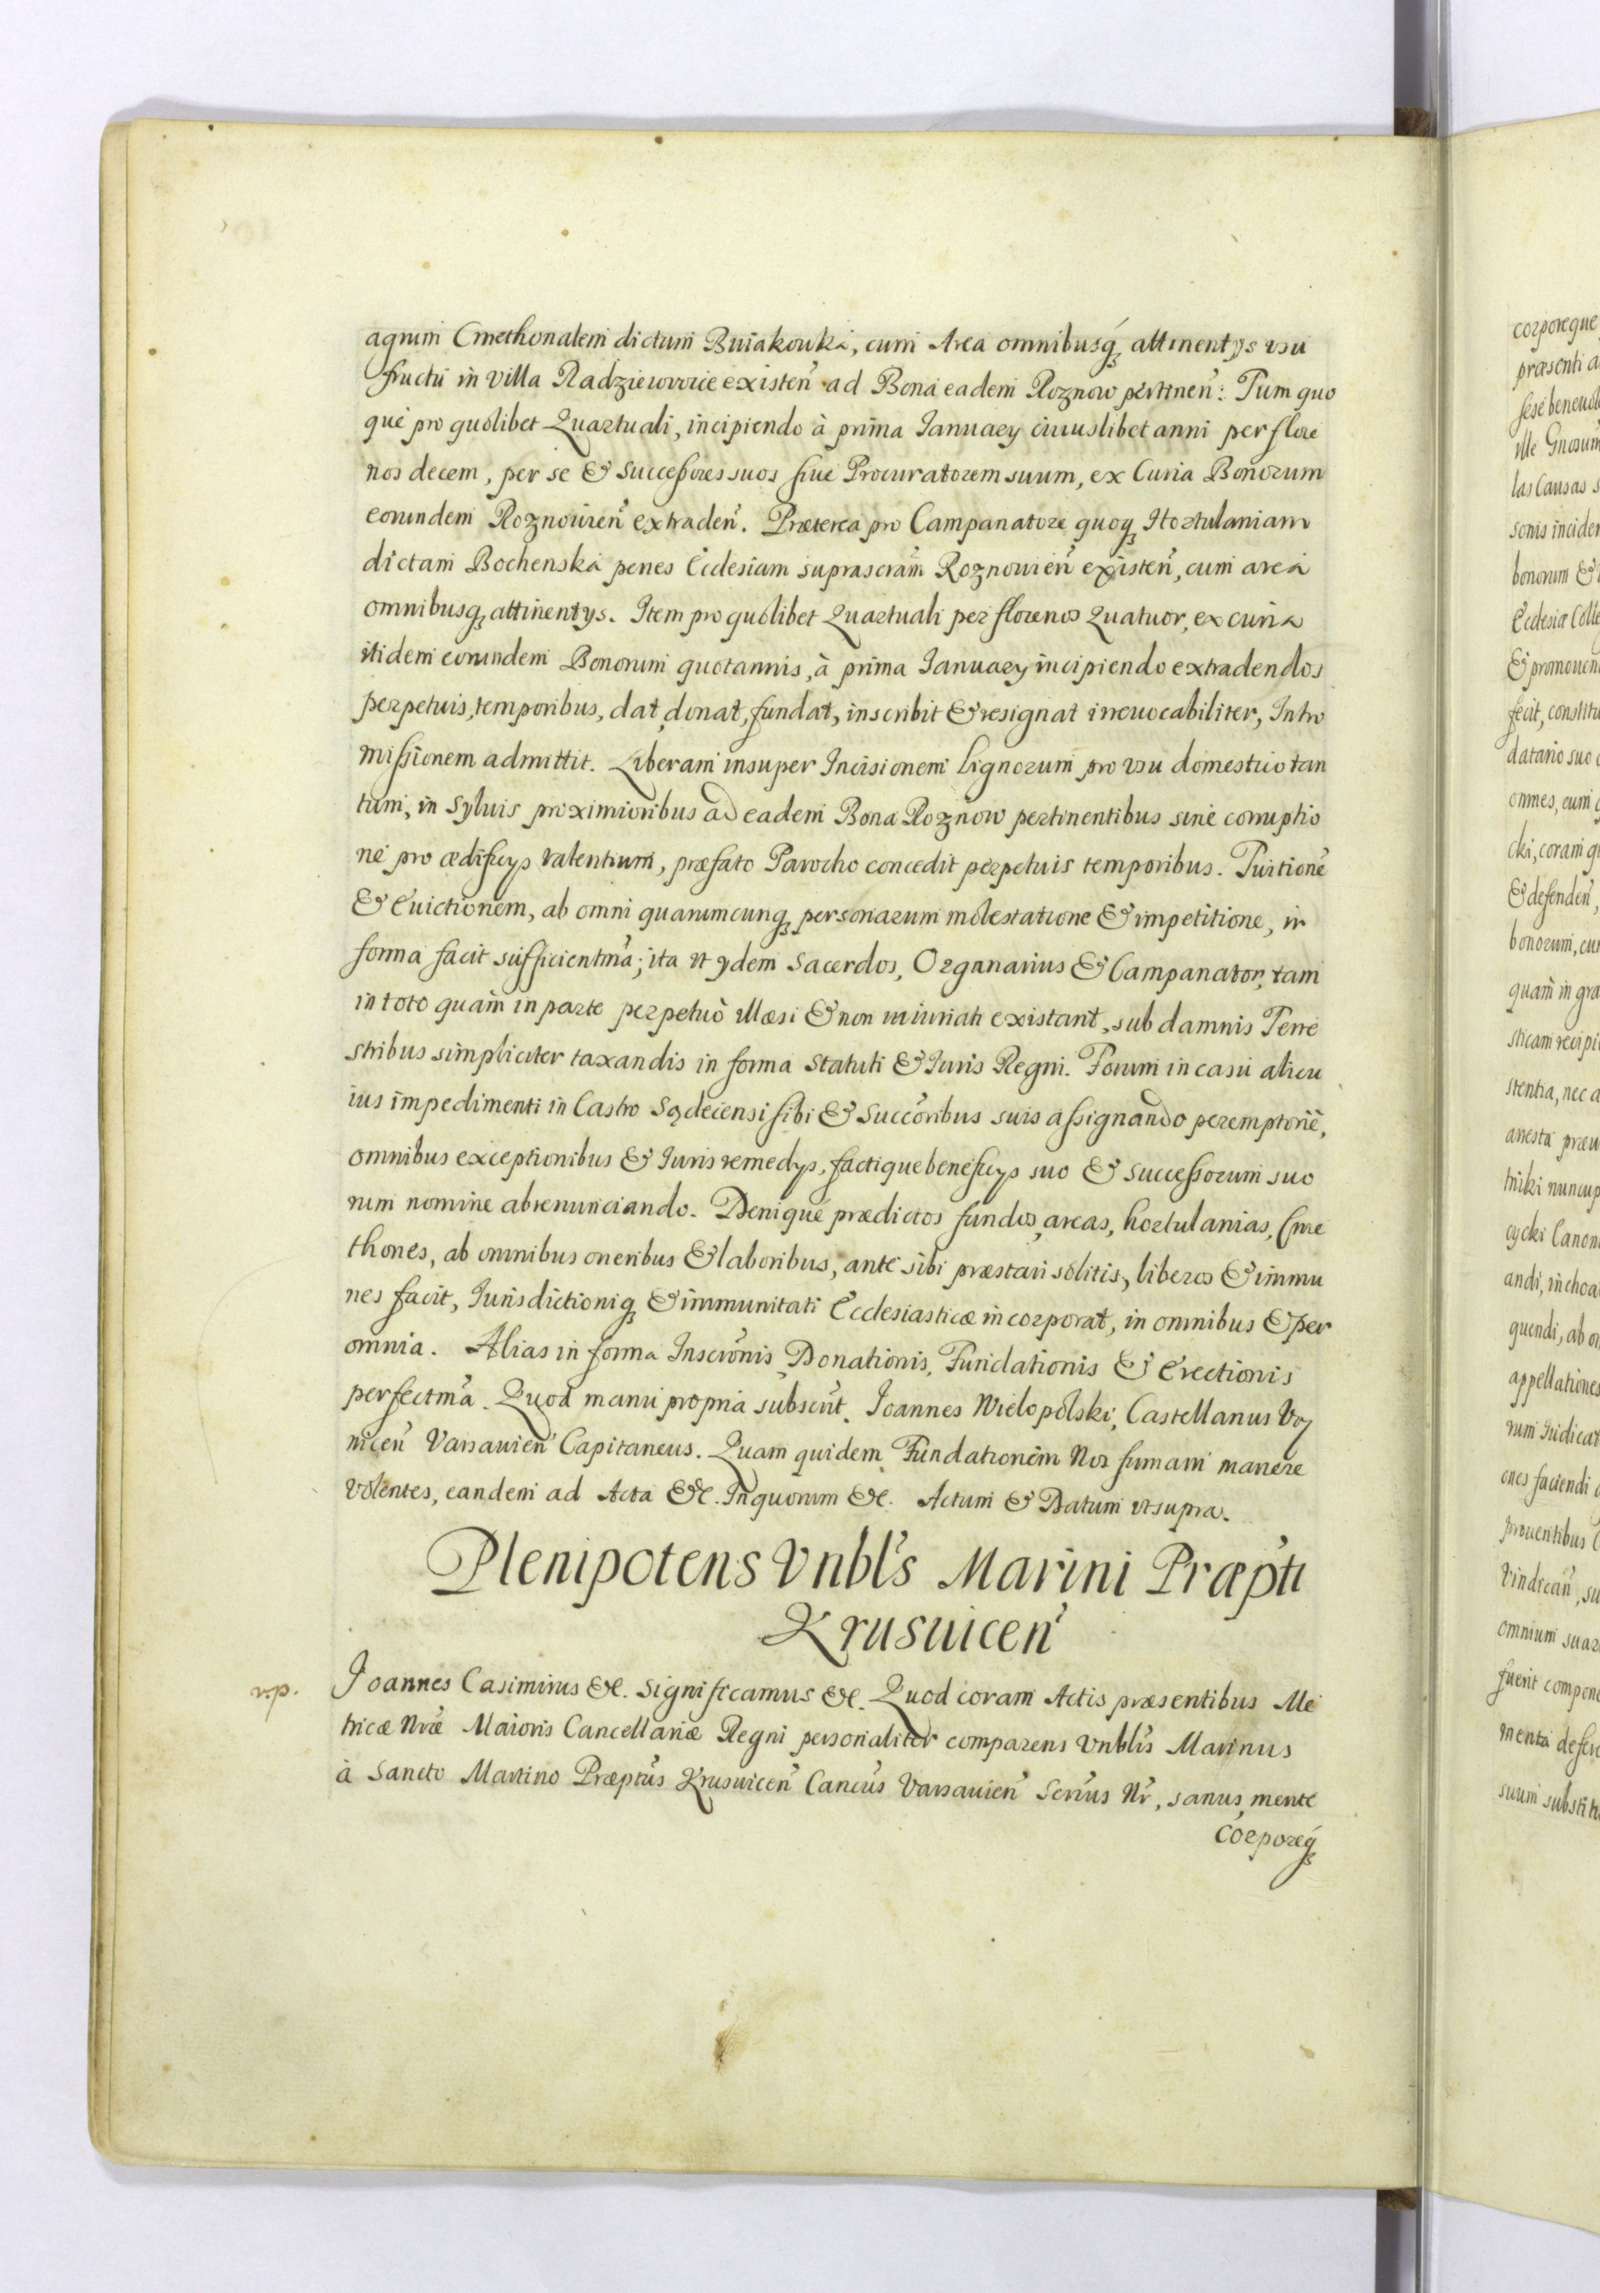 agrum Cmethonalem dictum Buiakouka, cum Area omnibusq́ attinentys vsu
fructu in villa Radzieiowice existeñ ad Bona eadem Roznow pertineñ: Tum quo
que pro quolibet Quartuali, incipiendo à prima January cuiuslibet anni per flore
nos decem, per se & Successores suos siue Procuratorem suum, ex Curia Bonorum
eorundem Roznouieñ extradeñ. Præterea pro Campanatore quoq Hortulaniam
dictam Bochenska penes Ecclesiam suprascram̃ Roznouieñ existeñ, cum area
omnibusq attinentys. Item pro quolibet Quartuali per florenos Quatuor, ex curia
itidem eorundem Bonorum quotannis, à prima January incipiendo extradendos
perpetuis, temporibus, dat, donat, fundat, inscribit & resignat irreuocabiliter, Intro
missionem admittit. Liberam insuper Incisionem lignorum pro vsu domestico tan
tum, in Syluis proximioribus ad eadem Bona Roznow pertinentibus sine corruptio
ne pro ædificys valentium, præfato Parocho concedit perpetuis temporibus. Tuitionẽ
& Euictionem, ab omni quarumcunq personarum molestatione & impetitione, in
forma facit sufficientm̃a; ita vt ydem Sacerdos, Organarius & Campanator, tam
in toto quàm in parte perpetuò illæsi & non iniuriati existant, sub damnis Terre
stribus simpliciter taxandis in forma Statuti & Iuris Regni. Forum in casu alicu
ius impedimenti in Castro Sądecensi sibi & Succoribus suis assignando peremptoriè,
omnibus exceptionibus & Iuris remedys, factique beneficys suo & Successorum suo
rum nomine abrenunciando. Denique prædictos fundos, areas, hortulanias, Cme
thones, ab omnibus oneribus & laboribus, ante sibi præstari solitis, liberos & immu
nes facit, Iurisdictioniq & immunitati Ecclesiasticæ incorporat, in omnibus & per
omnia. Alias in forma Inscrõnis Donationis, Fundationis & Erectionis
perfectm̃a. Quod manu propria subscrit̃. Joannes Wielopolski, Castellanus Voy
niceñ Varsauieñ Capitaneus. Quam quidem Fundationem Nos firmam manere
volentes, eandem ad Acta &c. In quorum &c. Actum & Datum vt supra.
Plenipotens Vnbl's Marini Præp'ti
Krusuiceñ
v.p. Joannes Casimirus &c. Significamus &c. Quod coram Actis præsentibus Me
tricæ Nræ Maioris Cancellariæ Regni personaliter comparens Vnblis Marinus
à Sancto Martino Præptus Krusuiceñ Cancus Varsauieñ Scrius Nr, sanus, mente
Corporeq́